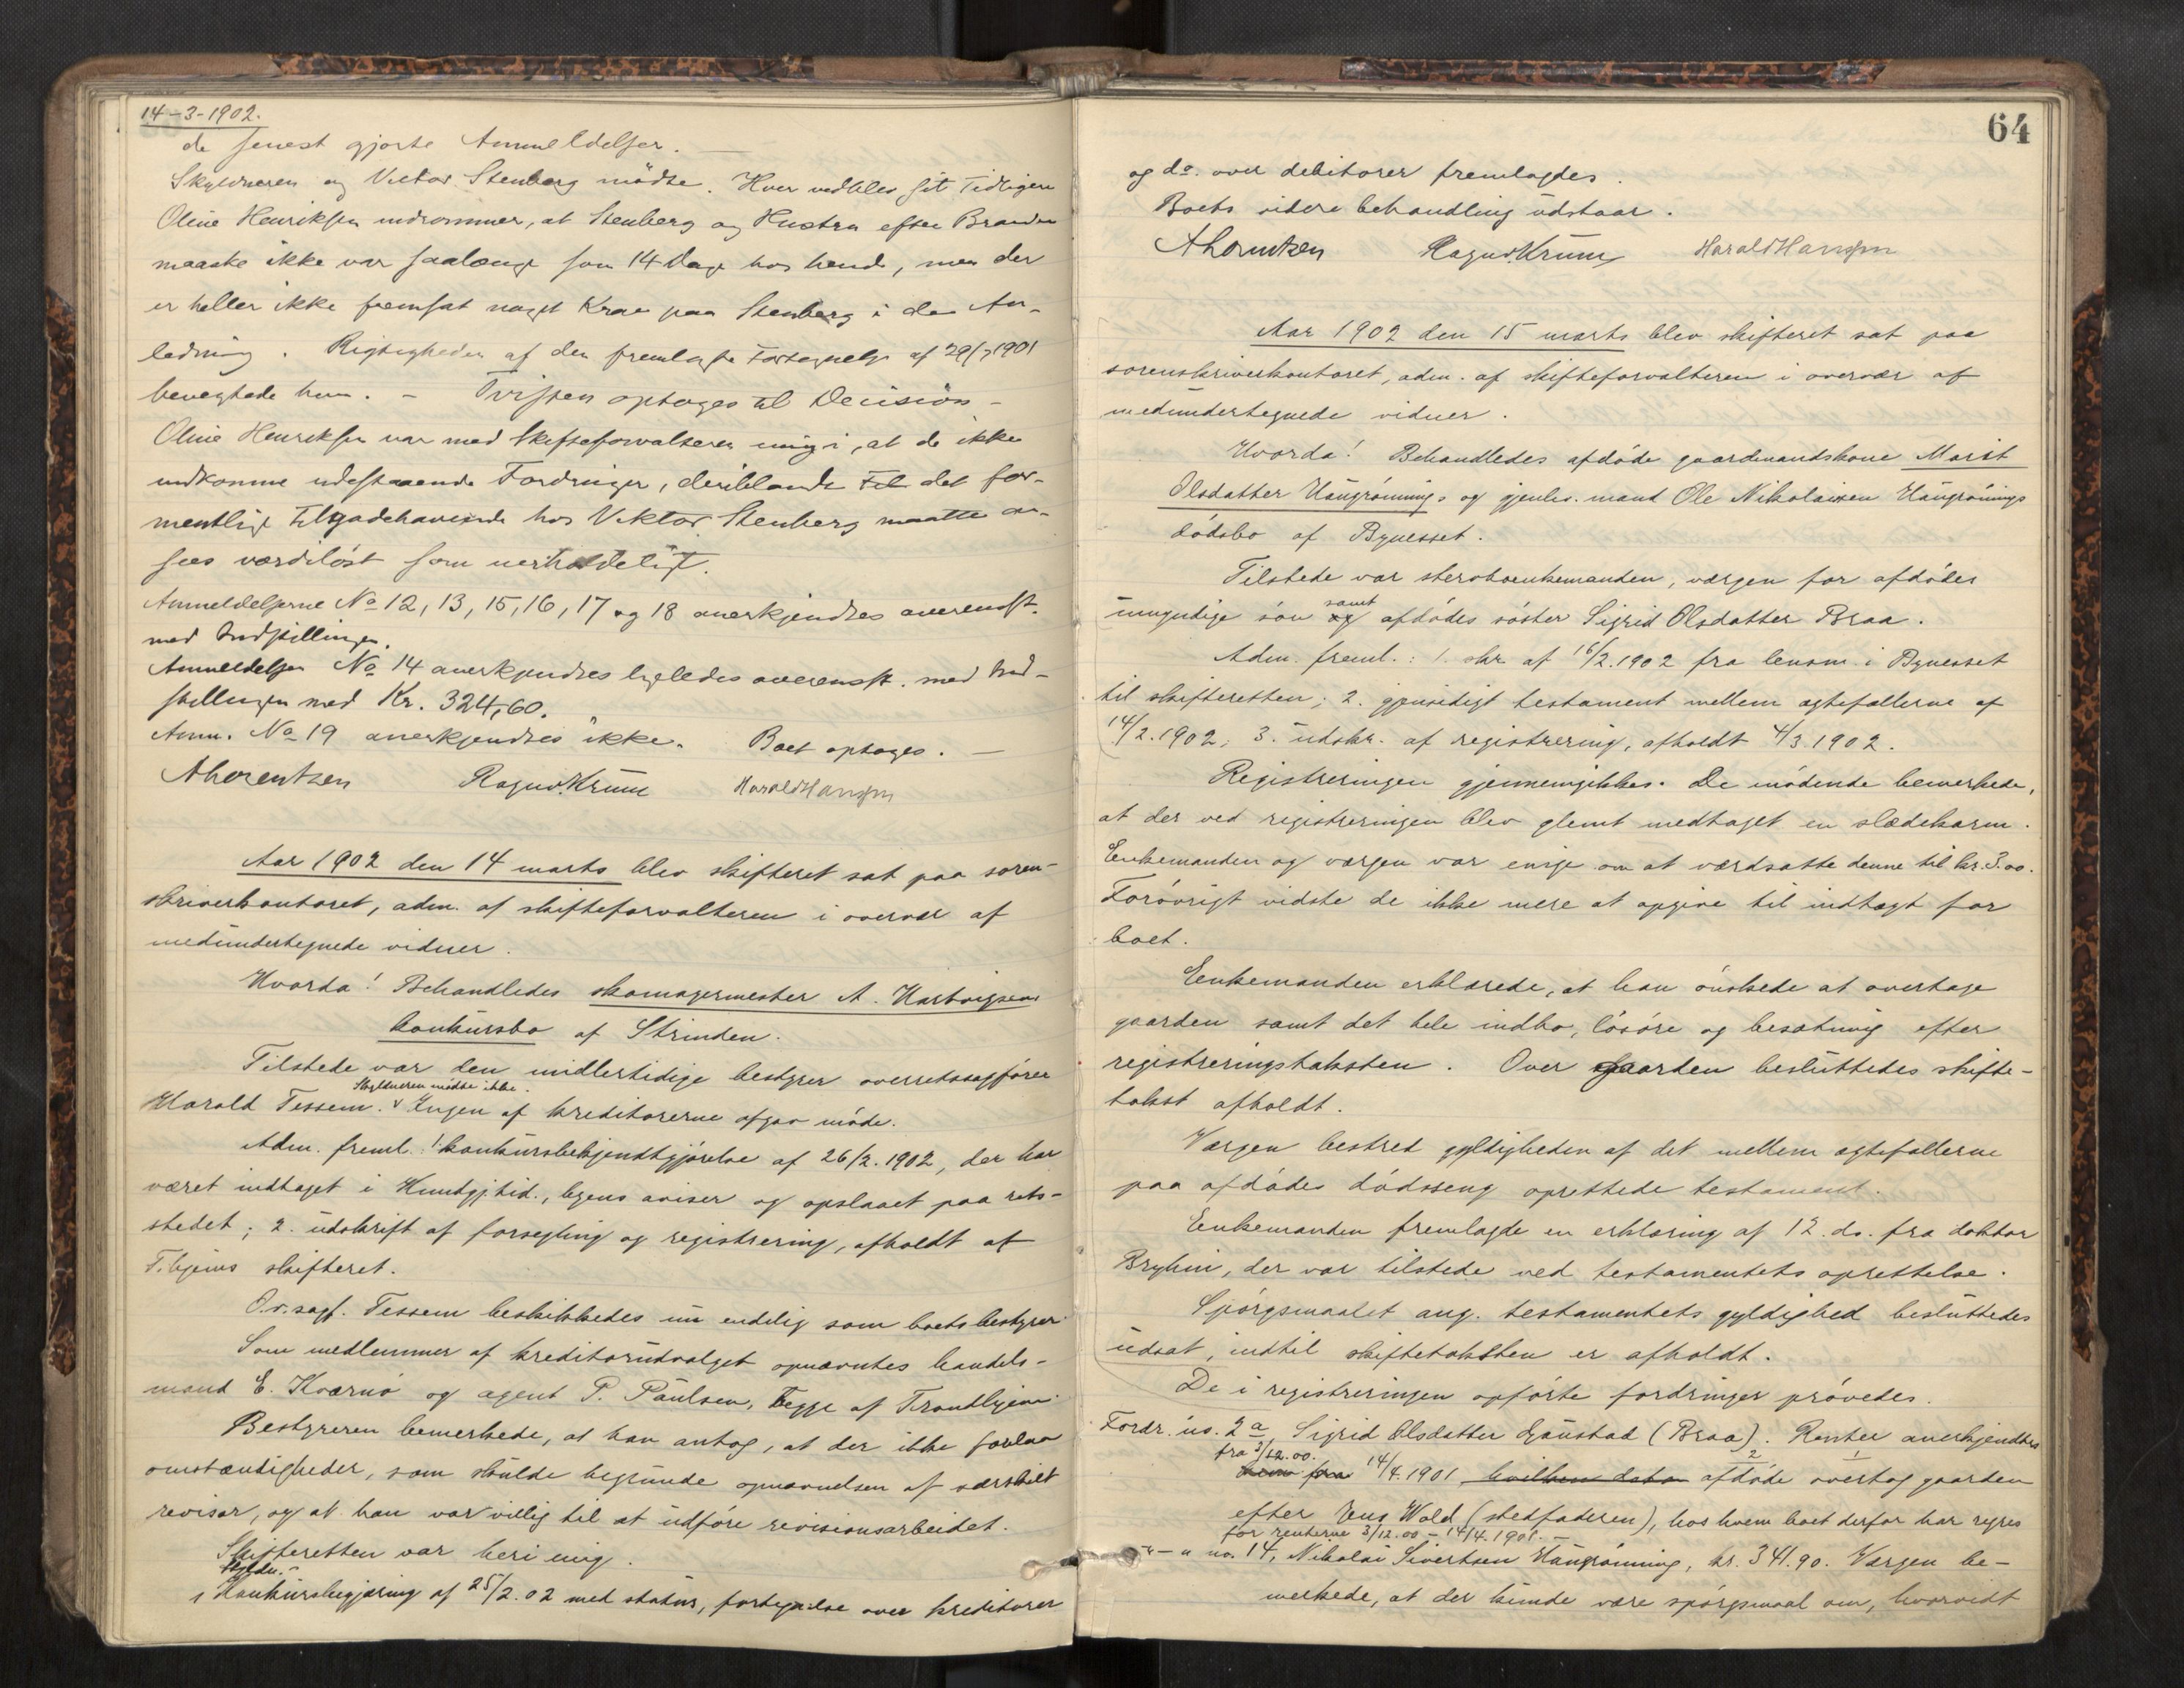 14-3-1902.
de senest gjorte Anmeldelser. —
Skyldneren og Viktor Stenberg mødte. Hver vedblev sit Tidligere
Oline Henriksen indrømmer, at Stenberg og Hustru efter Branden
maaske ikke var saalænge som 14 Dage hos hende, men der
er heller ikke fremsat noget Krav paa Stenberg i den An-
ledning. Rigtigheden af den fremlagte Fortegnelse af 29/7 1901
benegtede hun. — Tvisten optages til Decision —
Oline Henriksen var med Skifteforvalteren enig i, at de ikke
indkomne udestaaende Fordringer, deriblandt det for-
mentlige Tilgodehavende hos Viktor Stenberg maatte an-
sees værdiløst som uerholdeligt.
Anmeldelserne No 12, 13, 15, 16, 17 og 18 anerkjendtes overensst.
med Indstillingen.
Anmeldelsen No 14 anerkjendtes ligeledes overensst. med Ind-
stillingen med Kr. 324,60.
Anm. No 19 anerkjendtes ikke. Boet optages. —
A Lorentzen Ragnv. Krum Harald Hansen
Aar 1902 den 14 marts blev skifteret sat paa soren-
skriverkontoret, adm. af skifteforvalteren i overvær af
medundertegnede vidner.
Hvorda! Behandledes skomagermester A. Hartvigsens
konkursbo af Strinden.
Tilstede var den midlertidige bestyrer overretssagfører
Skyldneren mødte ikke.
Harald Tessem. v Ingen af kreditorerne afgav møde.
Adm. freml. 1. konkursbekjendtgjørelse af 26/2. 1902, der har
været indtaget i Kundgj.tid., byens aviser og opslaaet paa rets-
stedet; 2. udskrift af forsegling og registrering, afholdt af
T.hjems skifteret.
O.r.sagf. Tessem beskikkedes nu endelig som boets bestyrer.
Som medlemmer af kreditorudvalget opnævntes handels-
mand E. Kværnø og agent P. Paulsen, begge af Trondhjem.
Bestyreren bemerkede, at han antog, at der ikke forelaa
omstændigheder, som skulde begrunde opnævnelsen af særskilt
revisor, og at han var villig til at udføre revisionsarbeidet.
Skifteretten var heri enig.
Skyldn.
Konkursbegjæring af 25/2.02 med status, fortegnelse over kreditorer
64
og do. over debitorer fremlagdes.
Boets videre behandling udstaar.
A Lorentzen Ragnv. Krum Harald Hansen
Aar 1902 den 15 marts blev skifteret sat paa
sorenskriverkontoret, adm. af skifteforvalteren i overvær af
medundertegnede vidner.
Hvorda! Behandledes afdøde gaardmandskone Marit
Olsdatter Haugrønnings og gjenlev. mand Ole Nikolaisen Haugrønnings
dødsbo af Bynesset.
Tilstede var stervboenkemanden, værgen for afdødes
samt
umyndige søn og afdødes søster Sigrid Olsdatter Braa.
Adm. freml.: 1. skr. af 16/2.1902 fra lensm. i Bynesset
til skifteretten; 2. gjensidigt testament mellem ægtefællerne af
14/2.1902; 3. udskr. af registrering, afholdt 4/3.1902.
Registreringen gjennemgikkes. De mødende bemerkede,
at der ved registreringen blev glemt medtaget en slædekarm.
Enkemanden og værgen var enige om at værdsætte denne til kr. 3.00.
Forøvrigt vidste de ikke mere at opgive til indtægt for
boet.
Enkemanden erklærede, at han ønskede at overtage
gaarden samt det hele indbo, løsøre og besætning efter
registreringstaksten. Over gaarden besluttedes skifte-
takst afholdt.
Værgen bestred gyldigheden af det mellem ægtefællerne
paa afdødes dødsseng oprettede testament.
Enkemanden fremlagde en erklæring af 12. ds. fra doktor
Bryhni, der var tilstede ved testamentets oprettelse.
Spørgsmaalet ang. testamentets gyldighed besluttedes
udsat, indtil skiftetaksten er afholdt.
De i registreringen opførte fordringer prøvedes.
Fordr. no. 2a, Sigrid Olsdatter Gaustad (Braa). Renter anerkjendtes
fra 3/12.00. 2 1
fra 14/4.1901 hvilken dato afdøde overtog gaarden
efter Jens Wold (stedfaderen), hos hvem boet derfor har regres
for renterne 3/12.00 – 14/4.1901. —
– " – no. 14, Nikolai Sivertsen Haugrønning, kr. 341.90. Værgen be-
merkede, at der kunde være spørgsmaal om, hvorvidt